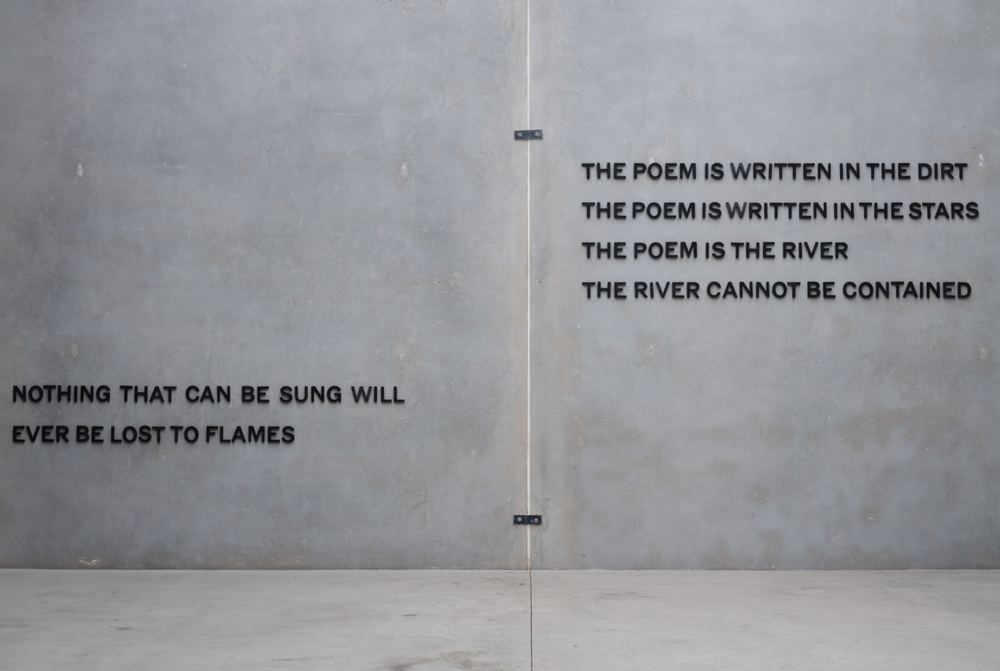 NOTHING THAT CAN BE SUNG WILL
EVER BE LOST TO FLAMES
THE POEM IS WRITTEN IN THE DIRT
THE POEM IS WRITTEN IN THE STARS
THE POEM IS THE RIVER
THE RIVER CANNOT BE CONTAINED